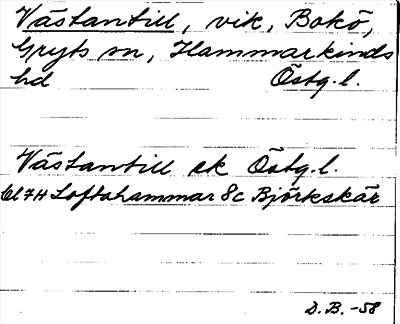 Västantill, vik, Bokö,
Gryts sn, Hammarkinds
hd Östg.l.
Västantill ek Östg.l.
7H Loftahammar 8c Björkskär
D.B. -58